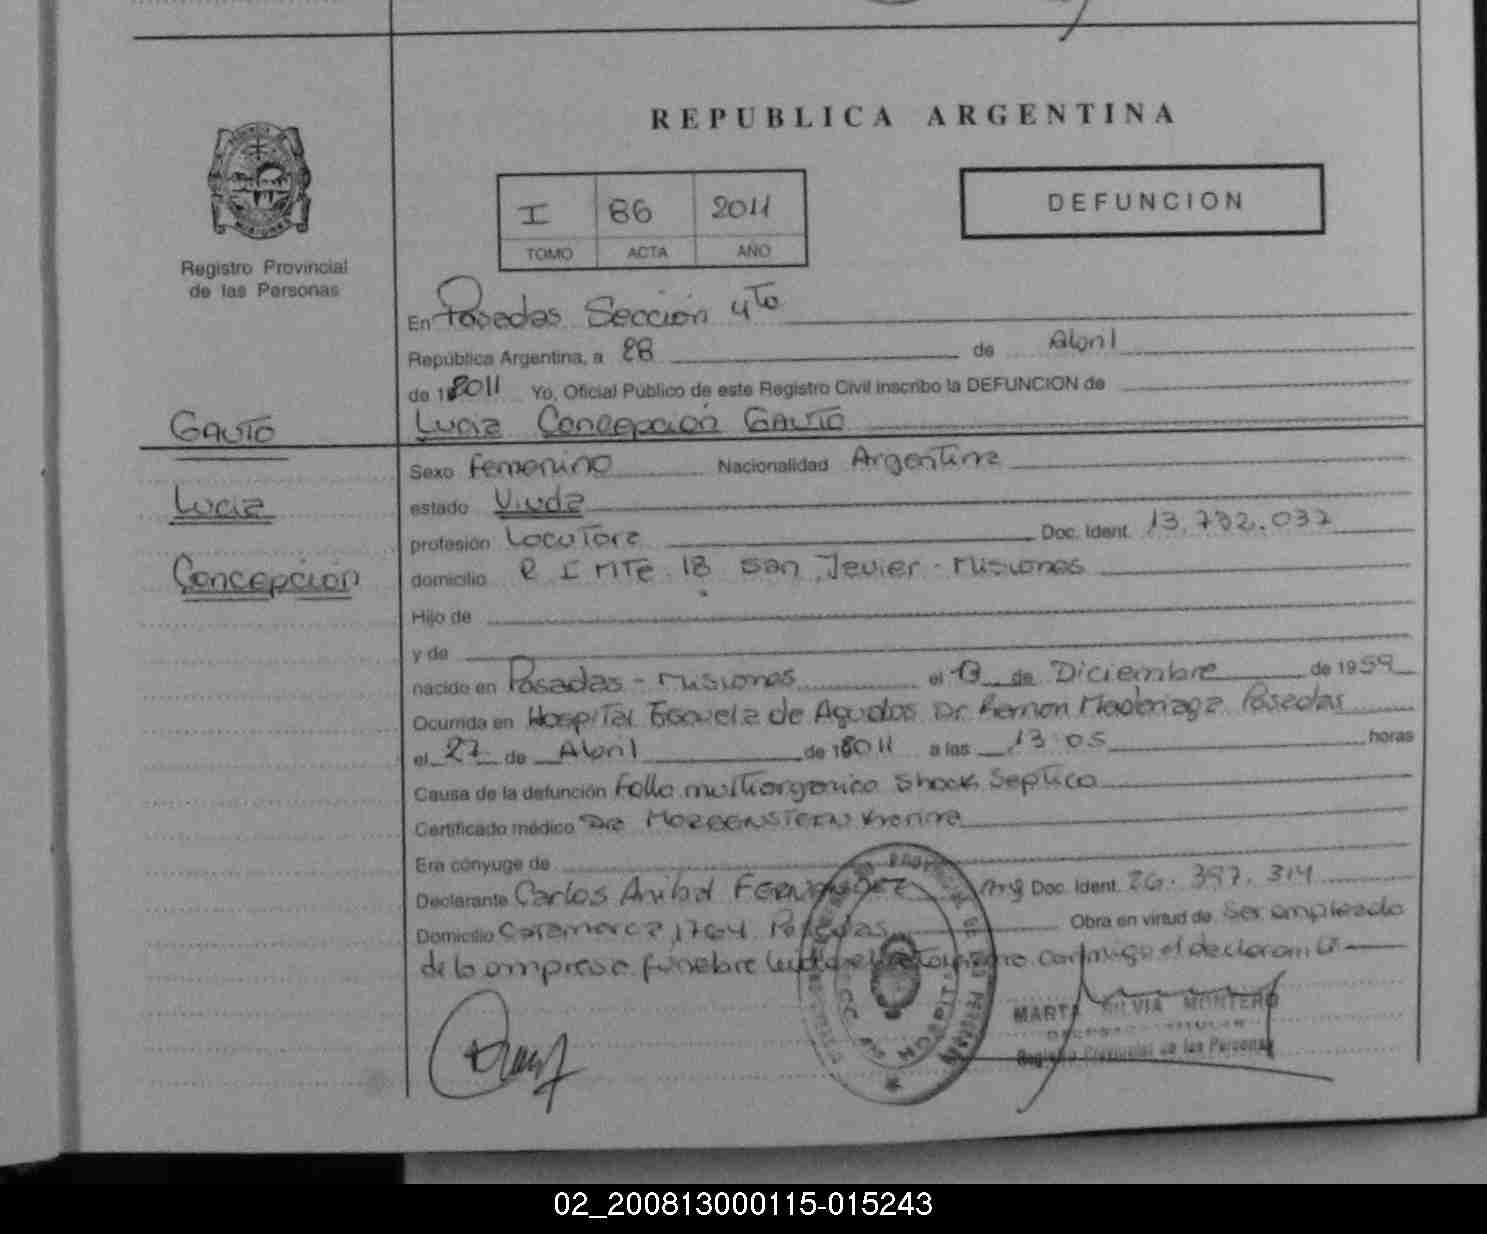 REPUBLICA ARGENTINA
I 86 2011
TOMO ACTA AÑO
DEFUNCION
Registro Provincial
de las Personas
En Posadas Sección 4to
República Argentina, a 28 de Abril
de 2011 Yo, Oficial Público de este Registro Civil inscribo la DEFUNCION de
Lucia Concepción GAUTO
GAUTO
Lucia
Concepción
Sexo Femenino Nacionalidad Argentina
estado Viuda
profesión Locutora Doc. Ident. 13.732.037
domicilio R I MTE 18 San Javier - Misiones
Hijo de
y de
nacido en Posadas - Misiones el 13 de Diciembre de 1959
Ocurrida en Hospital Escuela de Agudos Dr. Ramon Madariaga Posadas
el 27 de Abril de 2011 a las 13:05 horas
Causa de la defunción Falla multiorganica Shock Septico
Certificado médico Dra MORGENSTERN Karina
Era cónyuge de
Declarante Carlos Anibal FERNANDEZ Arg Doc. Ident. 26.397.314
Domicilio Catamarca 1764 Posadas Obra en virtud de Ser empleado
de la empresa funebre conmigo el declarante
MARTA SILVIA MONTERO
Registro Provincial de las Personas
02_200813000115-015243